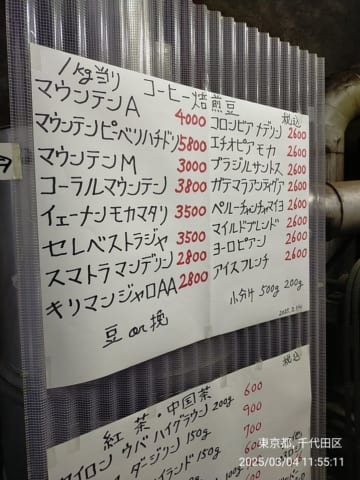 1kg当り コーヒー焙煎豆
税込
マウンテンA 4000
マウンテンピーベリハチドリ 5800
マウンテンM 3000
コーラルマウンテン 3800
イェーナンモカマタリ 3500
セレベストラジャ 3500
スマトラマンデリン 2800
キリマンジャロAA 2800
豆 or 挽
コロンビアメデリン 2600
エチオピアモカ 2600
ブラジルサントス 2600
ガテマラアンティグア 2600
ペルーチャンチャマイヨ 2600
マイルドブレンド 2600
ヨーロピアン 2600
アイスフレンチ 2600
小分け 500g 200g
税込
紅茶・中国茶
ウバハイグラウン 200g 600
ダージリン 150g 900
150g 700
東京都, 千代田区
2025/03/04 11:55:11